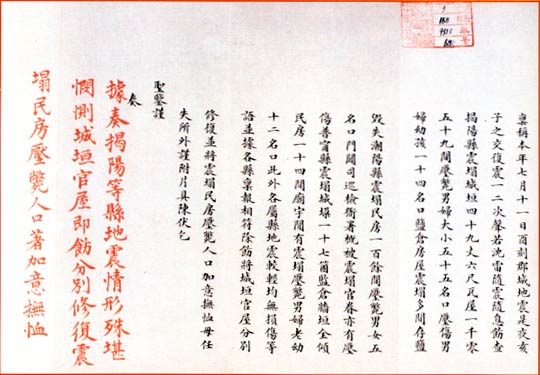 稟稱本年七月十一日酉刻郡城地震是夜亥
子之交復震一二次聲若沈雷隨震隨息飭查
揭陽縣震塌城垣四十九丈六尺瓦屋一千零
五十九間壓斃男婦大小五十五名口壓傷男
婦幼孩一十四名口鹽倉房屋震塌多間存鹽
毀失潮陽縣震塌民房一百餘間壓斃男女五
名口門闢司巡檢衙署概被震塌官眷亦有壓
傷普寧縣震塌城堞一十七箇監倉牆垣全傾
民房一十四間廟宇間有震塌壓斃男婦老幼
十二名口此外各屬縣地震較輕均無損傷等
語並據各縣稟報相符除飭將城垣官屋分別
修復並將震塌民房壓斃人口加意撫恤毋任
失所外謹附片具陳伏乞
聖鑒謹
奏
據奏揭陽等縣地震情形殊堪
憫惻城垣官屋即飭分別修復震
塌民房壓斃人口著加意撫恤